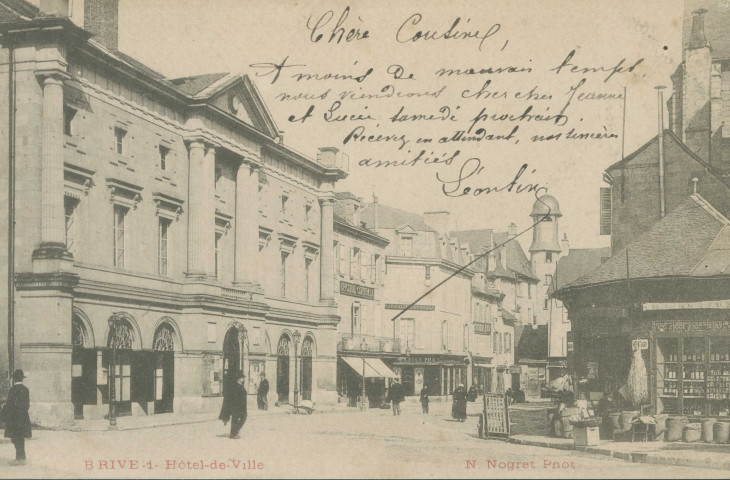 Chère Cousine,
A moins de mauvais temps,
nous viendrons chercher Jeanne
et Lucie samedi prochain.
Recevez en attendant, nos sincères
amitiés
Léontine
BRIVE -1- Hôtel-de-Ville
N. Nogret Phot